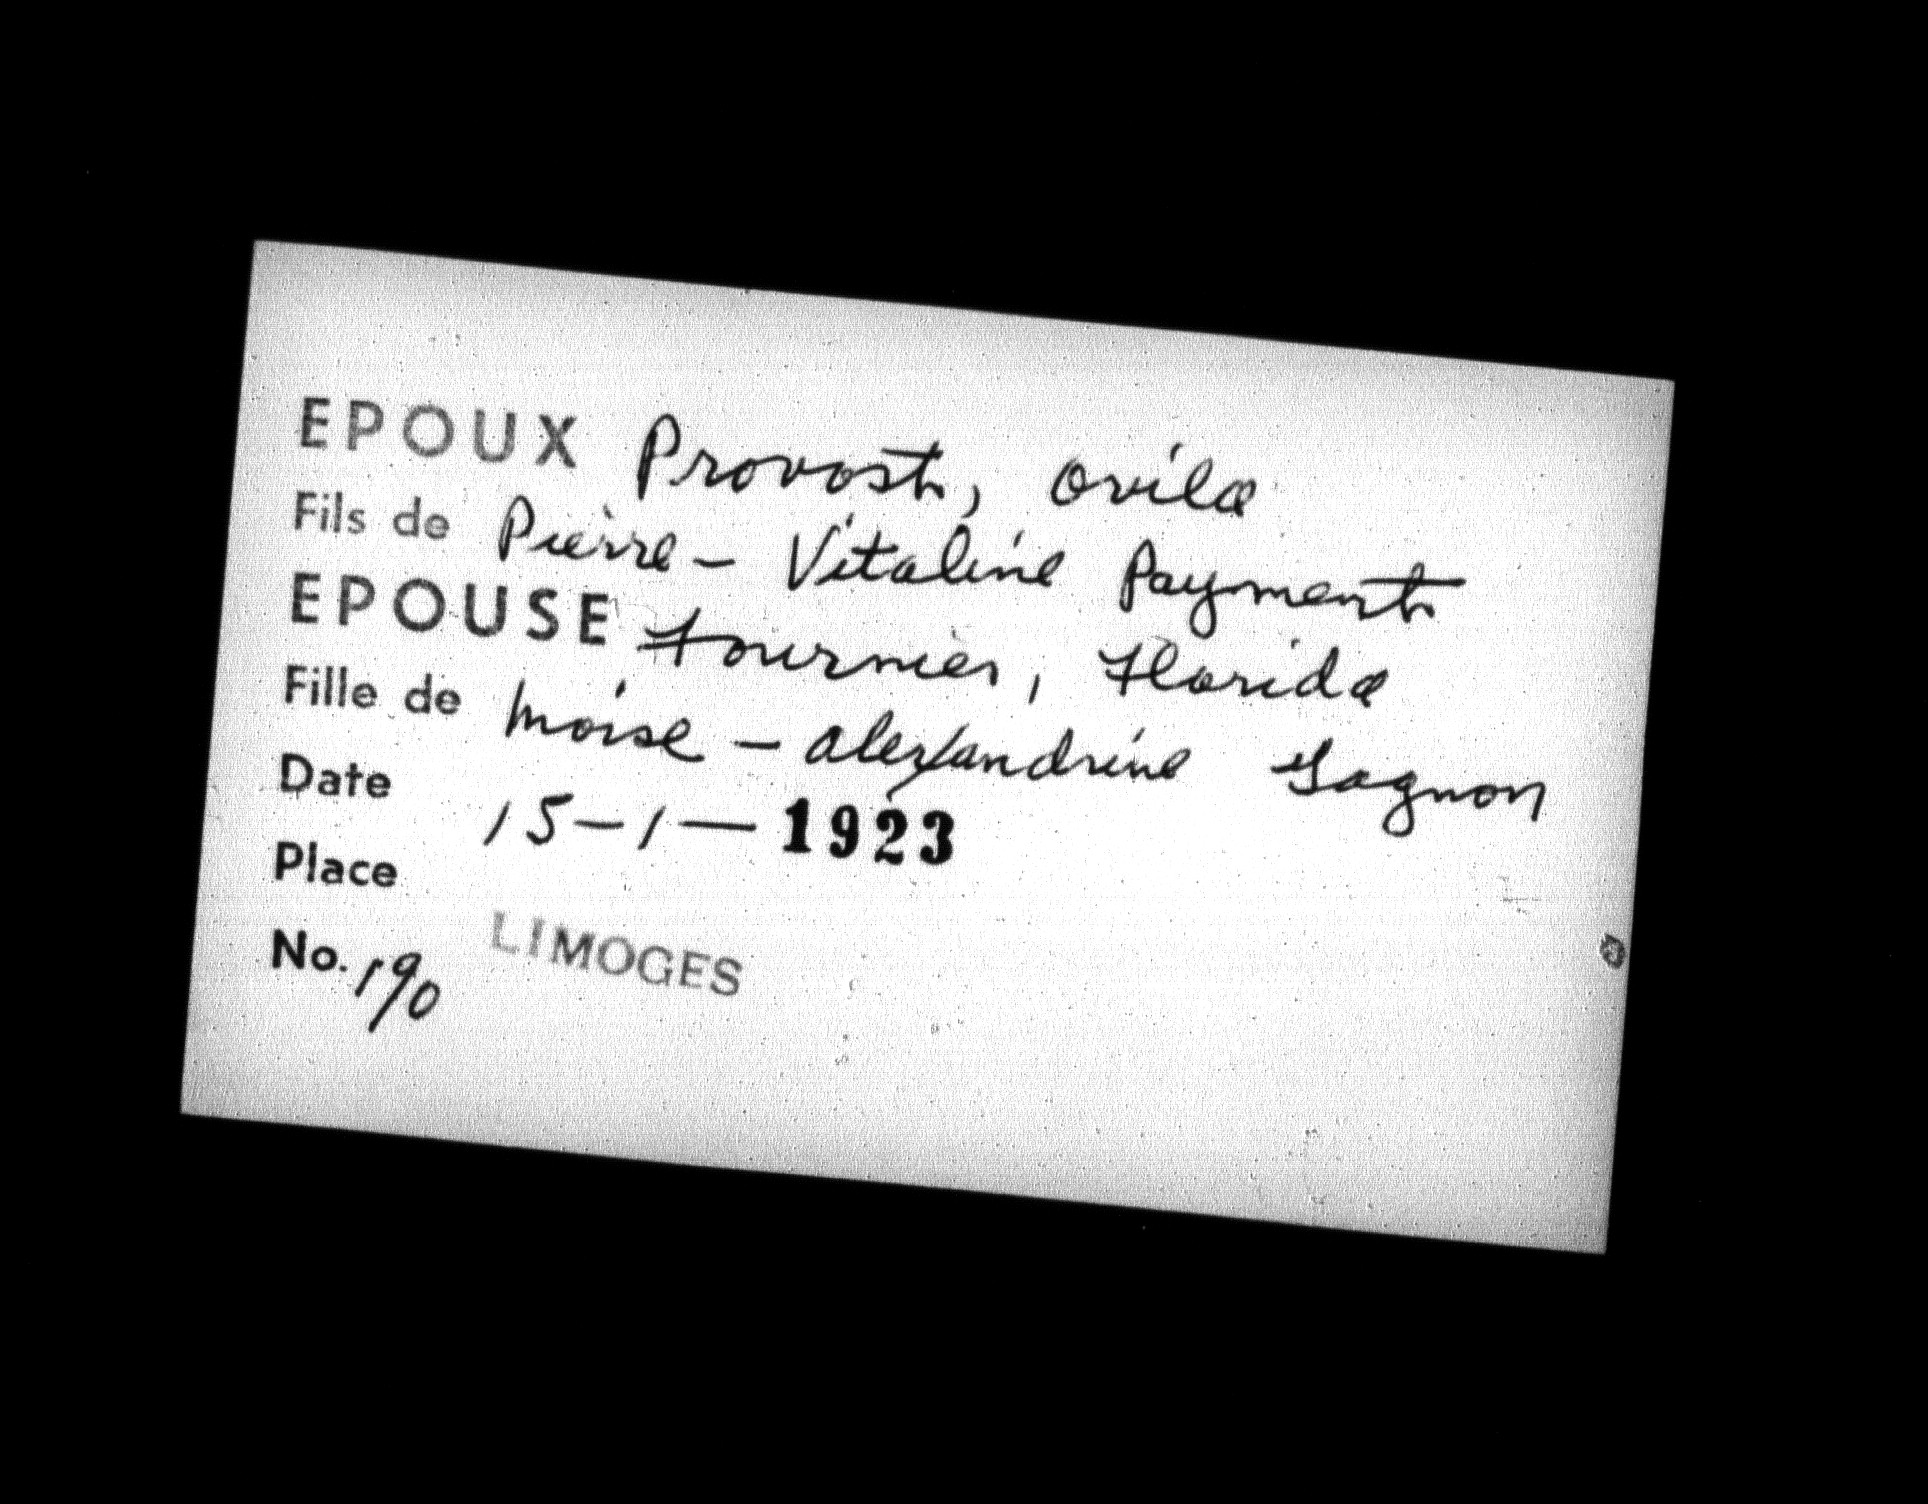 EPOUX Provost, Ovila
Fils de Pierre - Vitaline Payment
EPOUSE Fournier, Florida
Fille de Moise - Alexandrine Gagnon
Date 15-1-1923
Place LIMOGES
No. 190